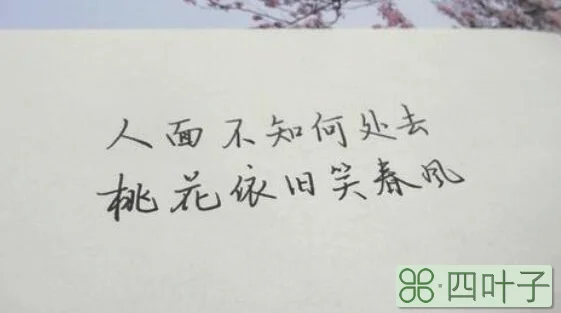 人面不知何处去
桃花依旧笑春风
四叶子